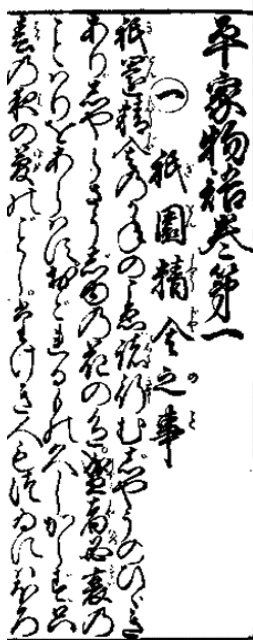 平家物語巻第一
一 祇園精舎之事
祇園精舎のかねのこゑ諸行むじやうのひゞき
ありしやらさうじゆの花の色盛者必衰の
ことハりをあらハすおごれるもの久しからず只
春の夜の夢のごとし。たけき人もつゐにハほろ